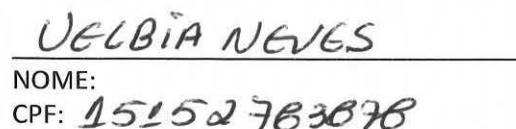 UELBIA NEVES
NOME:
CPF: 15152783878